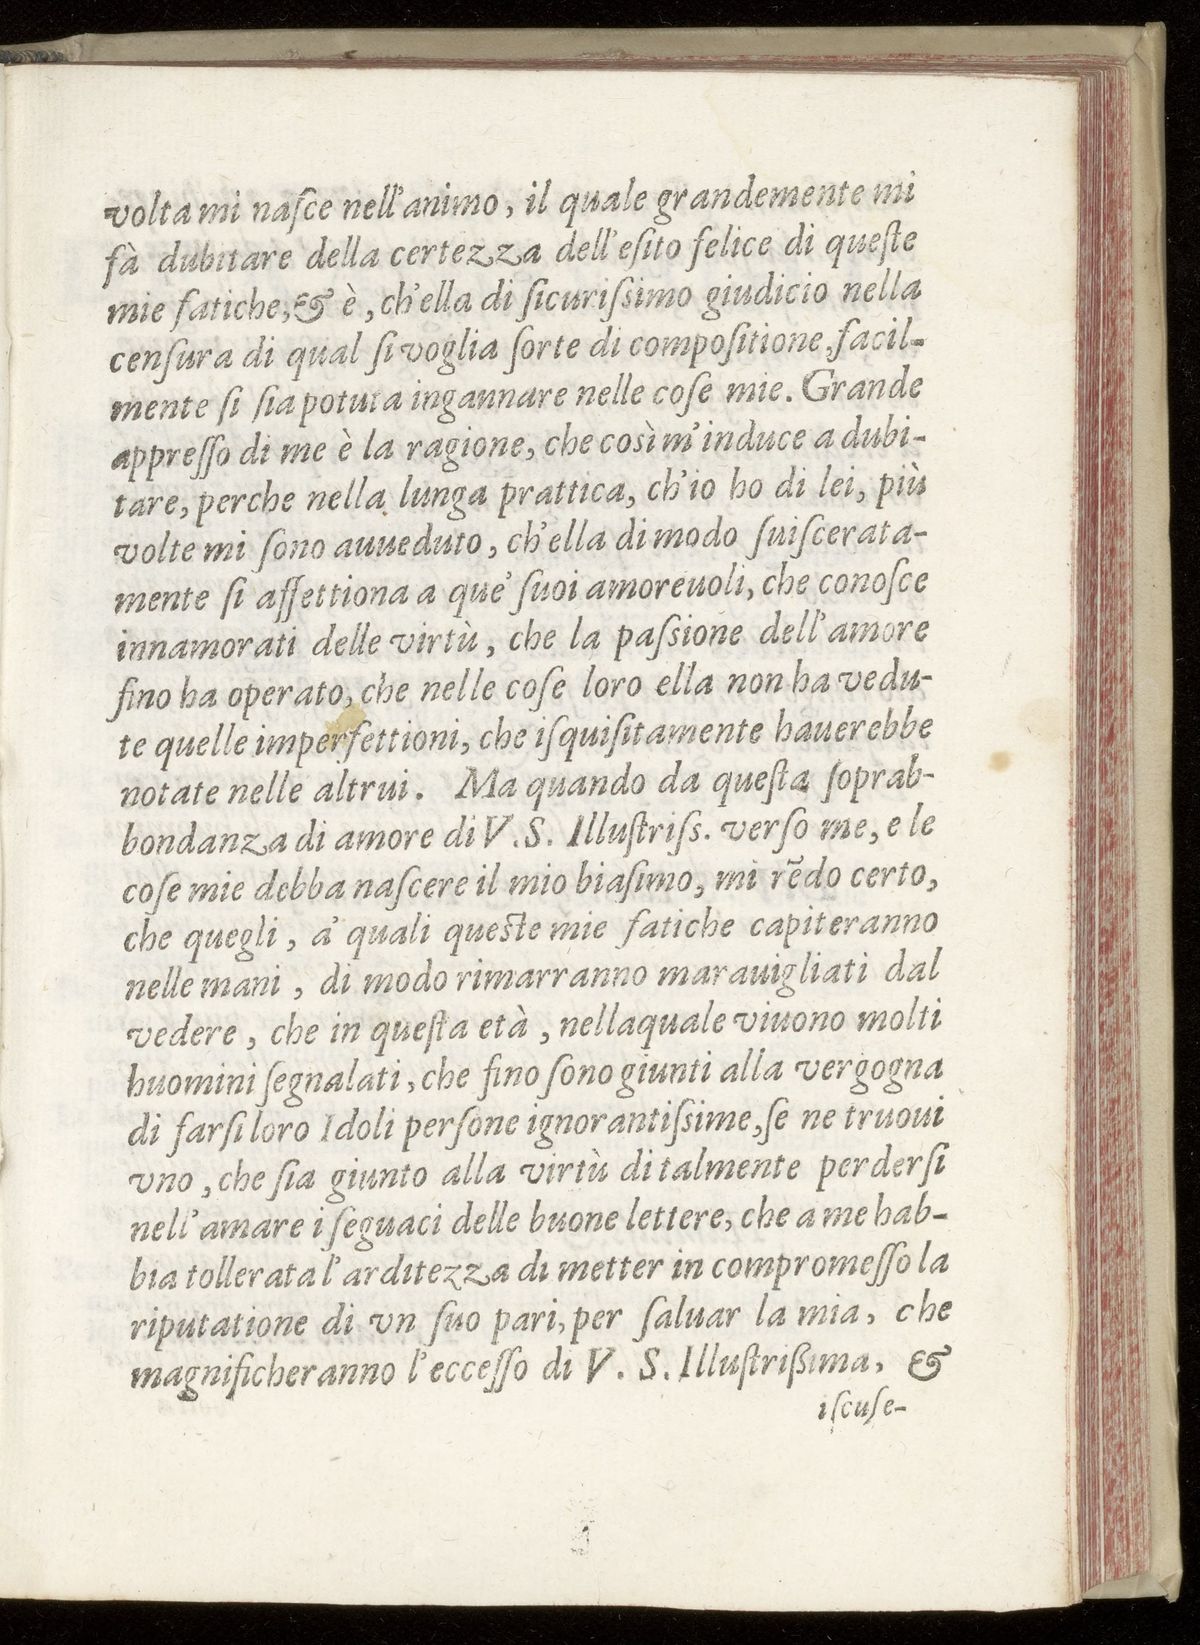 volta mi naſce nell'animo, il quale grandemente mi
fà dubitare della certezza dell'eſito felice di queſte
mie fatiche, & è, ch'ella di ſicuriſsimo giudicio nella
cenſura di qual ſi voglia ſorte di compoſitione, facil-
mente ſi ſia potuta ingannare nelle coſe mie. Grande
appreſſo di me è la ragione, che così m'induce a dubi-
tare, perche nella lunga prattica, ch'io ho di lei, più
volte mi ſono auueduto, ch'ella di modo ſuiſcerata-
mente ſi affettiona a que' ſuoi amoreuoli, che conoſce
innamorati delle virtù, che la paſsione dell'amore
fino ha operato, che nelle coſe loro ella non ha vedu-
te quelle imperfettioni, che iſquiſitamente hauerebbe
notate nelle altrui. Ma quando da queſta ſoprab-
bondanza di amore di V. S. Illuſtriſs. verſo me, e le
coſe mie debba naſcere il mio biaſimo, mi rẽdo certo,
che quegli, a' quali queſte mie fatiche capiteranno
nelle mani, di modo rimarranno marauigliati dal
vedere, che in queſta età, nellaquale viuono molti
huomini ſegnalati, che fino ſono giunti alla vergogna
di farſi loro Idoli perſone ignorantiſsime, ſe ne truoui
vno, che ſia giunto alla virtù di talmente perderſi
nell'amare i ſeguaci delle buone lettere, che a me hab-
bia tollerata l'arditezza di metter in compromeſſo la
riputatione di vn ſuo pari, per ſaluar la mia, che
magnificheranno l'ecceſſo di V. S. Illuſtrißima, &
iſcuſe-